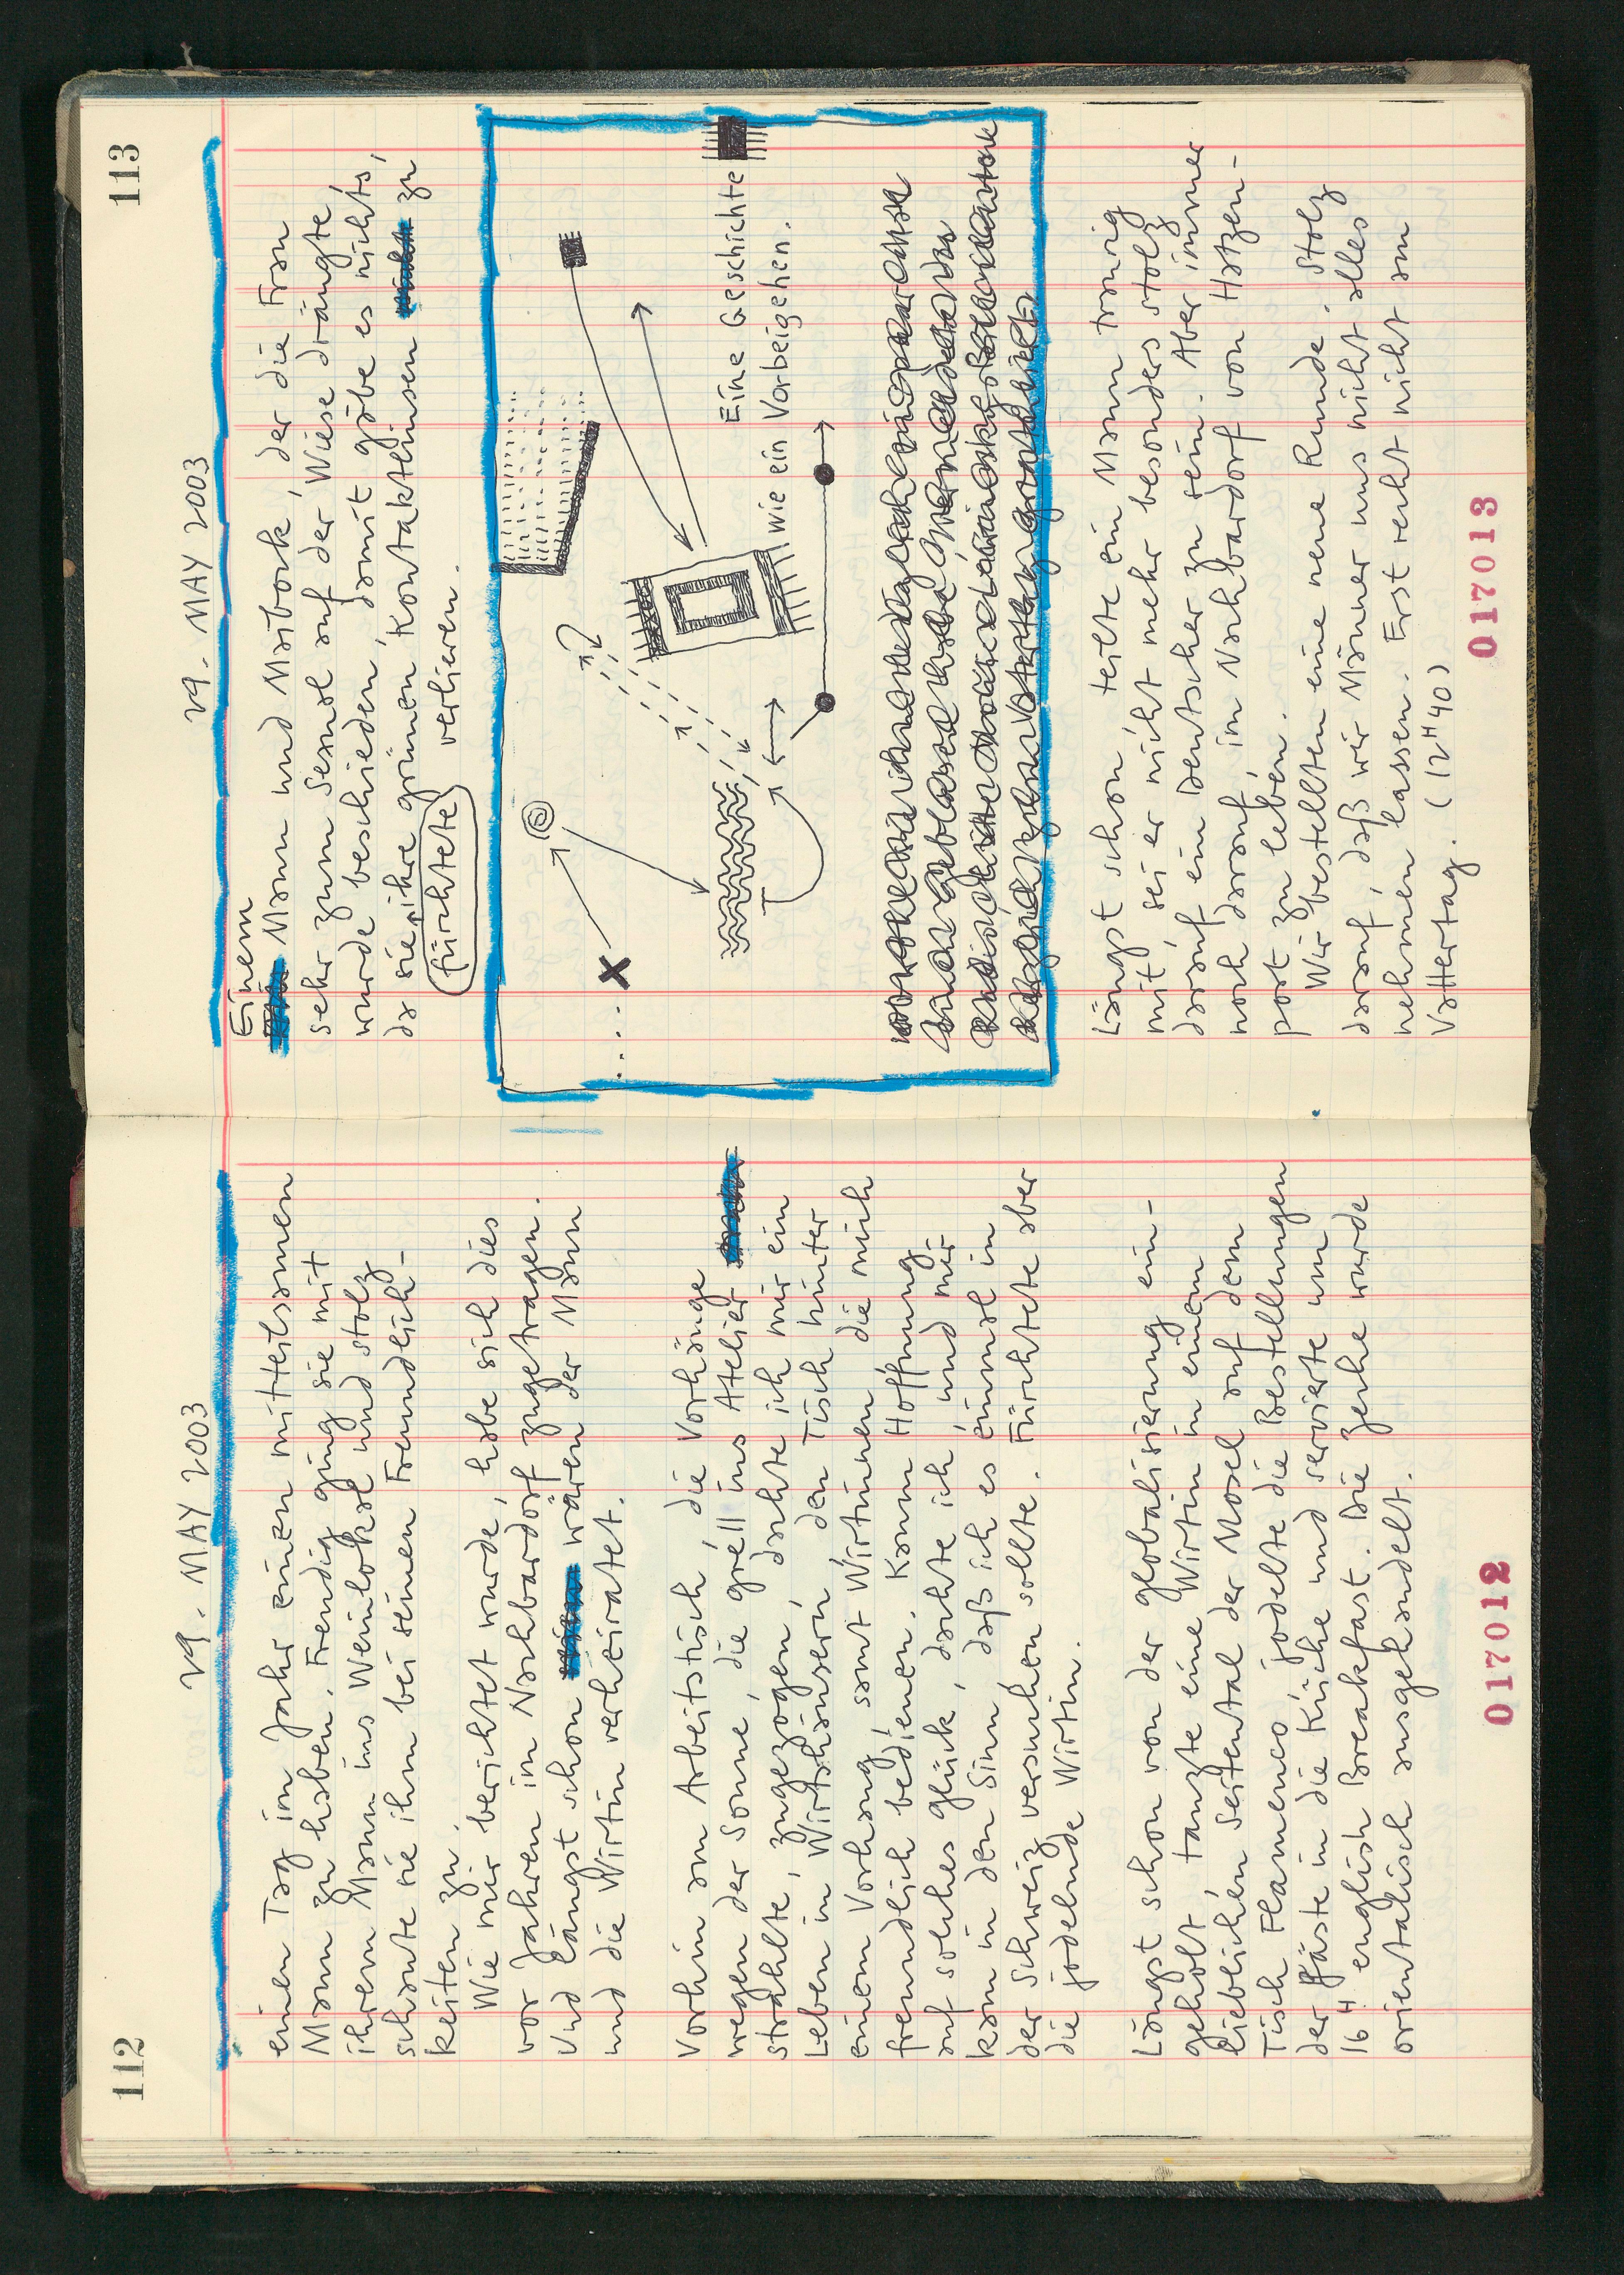 112
29. MAY 2003
einen Tag im Jahr einen mitteilsamen
Mann zu haben. Freudig ging sie mit
ihrem Mann ins Weinlokal und stolz
schaute sie ihm bei seinen Freundlich-
keiten zu.
Wie mir berichtet wurde, habe sich dies
vor Jahren im Nachbardorf zugetragen.
Und längst schon wären der Mann
und die Wirtin verheiratet.
Vorhin am Arbeitstisch, die Vorhänge
wegen der Sonne, die grell ins Atelier
strahlte, zugezogen, dachte ich mir ein
Leben in Wirtshäusern, den Tisch hinter
einem Vorhang, samt Wirtinnen die mich
freundlich bedienen. Kaum Hoffnung
auf solches Glück, dachte ich, und mir
kam in den Sinn, daß ich es einmal in
der Schweiz versuchen sollte. Fürchtete aber
die jodelnde Wirtin.
Längst schon von der Globalisierung ein-
geholt, tanzte eine Wirtin in einem
lieblichen Seitental der Mosel auf dem
Tisch Flamenco, jodelte die Bestellungen
der Gäste in die Küche und servierte um
16H english Breakfast. Die Zeche wurde
orientalisch ausgehandelt.
017012
113
29. MAY 2003
Einem
Mann und Maibock, der die Frau
sehr zum Sesual auf der Wiese drängte,
wurde beschieden, damit gäbe es nichts,
da sie ihre grünen Kontaktlinsen zu
fürchtete verlieren.
Eine Geschichte
wie ein Vorbeigehen.
Längst schon, teilte ein Mann traurig
mit, sei er nicht mehr besonders stolz
darauf ein Deutscher zu sein. Aber immer
noch darauf, im Nachbardorf von Hatzen-
port zu leben.
Wir bestellten eine neue Runde. Stolz
darauf, daß wir Männer uns nicht alles
nehmen lassen. Erst recht nicht am
Vattertag. (12H40)
017013